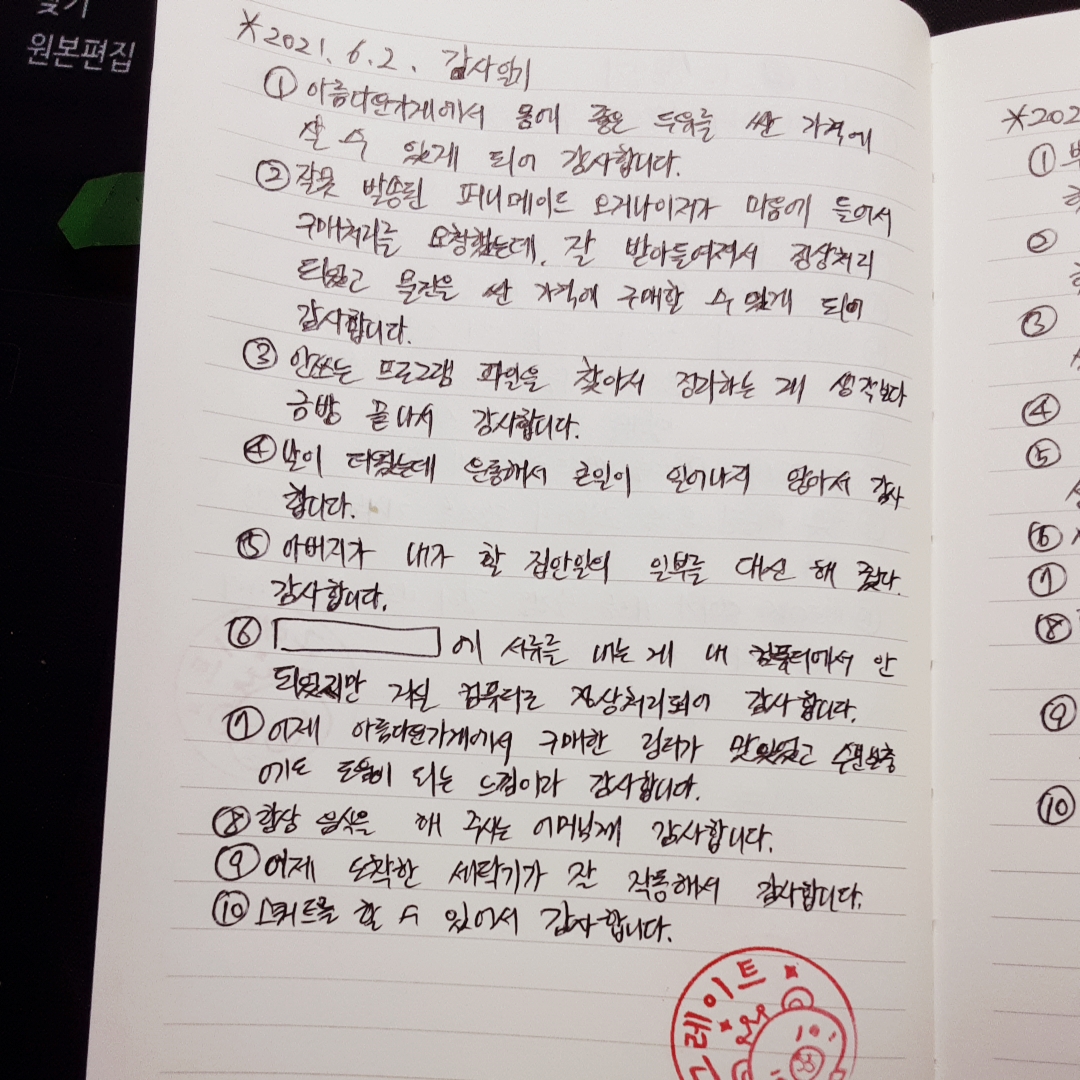 찾기
원본편집
*2021. 6. 2. 감사일기
① 아름다운가게에서 몸에 좋은 두유를 싼 가격에
살 수 있게 되어 감사합니다.
② 잘못 발송된 퍼니메이드 오거나이저가 마음에 들어서
구매처리를 요청했는데, 잘 받아들여져서 정상처리
되었고 물건을 싼 가격에 구매할 수 있게 되어
감사합니다.
③ 안쓰는 프로그램 파일을 찾아서 정리하는 게 생각보다
금방 끝나서 감사합니다.
④ 날이 더웠는데 운동해서 큰일이 일어나지 않아서 감사
합니다.
⑤ 아버지가 내가 할 집안일의 일부를 대신 해 줬다.
감사합니다.
⑥ 에 서류를 내는 게 내 컴퓨터에서 안
되었지만 거실 컴퓨터로 정상처리되어 감사합니다.
⑦ 어제 아름다운가게에서 구매한 워터가 맛있었고 수분보충
에도 도움이 되는 느낌이라 감사합니다.
⑧ 항상 음식을 해 주시는 어머님께 감사합니다.
⑨ 어제 도착한 세탁기가 잘 작동해서 감사합니다.
⑩ 스쿼트를 할 수 있어서 감사합니다.
그레이트
*202
①
②
③
④
⑤
⑥
⑦
⑧
⑨
⑩